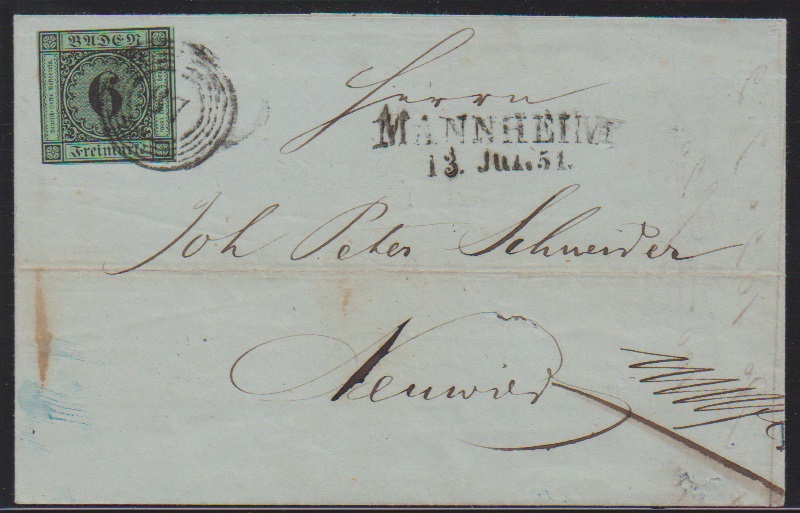 BADEN
6
Freimarke
Herrn
MANNHEIM
13. JUL. 51.
Joh Peter Schneider
Neuwied